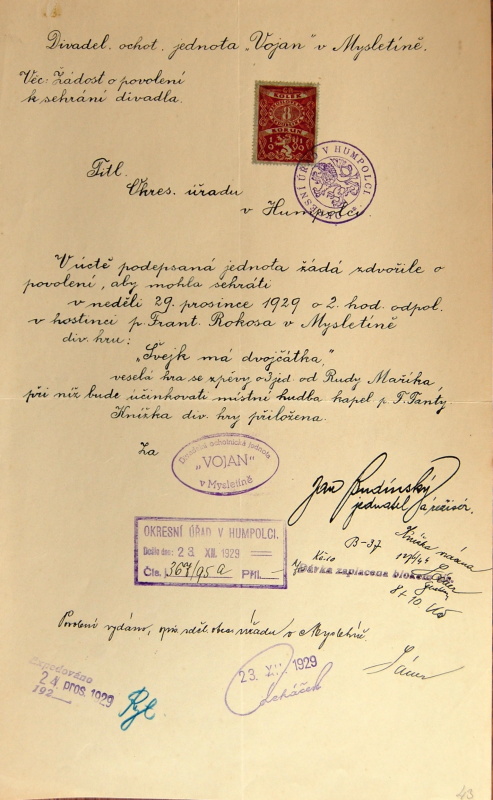 Divadel. ochot. jednota „Vojan" v Mysletíně.
Věc: Žádost o povolení
k sehrání divadla.
KOLEK
8
KORUN
1919
OKRESNÍ ÚŘAD V HUMPOLCI
Titl.
Okres. úřadu
v Humpolci.
V úctě podepsaná jednota žádá zdvořile o
povolení, aby mohla sehráti
v neděli 29. prosince 1929 o 2. hod. odpol.
v hostinci p. Frant. Rokosa v Mysletíně
div. hru:
„Švejk má dvojčátka"
veselá hra se zpěvy o 3 jed. od Rudy Maříka,
při níž bude účinkovati místní hudba kapel. p. F. Fanty.
Knížka div. hry přiložena.
Za
Divadelní ochotnická jednota
„VOJAN"
v Mysletíně
Jan Budínský
jednatel a režisér.
OKRESNÍ ÚŘAD V HUMPOLCI.
Došlo dne: 23 XII. 1929
Čís. 367/95 a Příl. -
Knížka vrácena
B-37
Dávka zaplacena
8 + 10 Kč
Povolení vydáno, obec. úřadu v Mysletíně.
Vypraveno
24. pros. 1929
192
23. XII. 1929
43